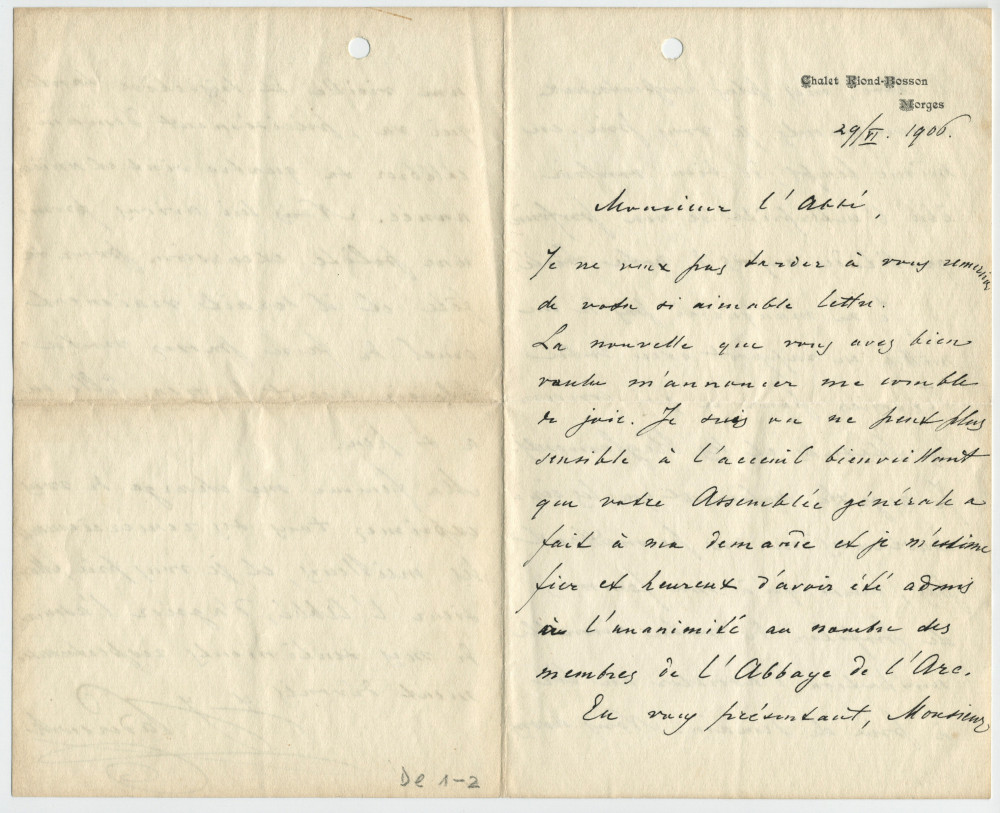 Chalet Riond-Bosson
Morges
29/VI. 1906.
Monsieur l'Abbé,
Je ne veux pas tarder à vous remercier
de votre si aimable lettre.
La nouvelle que vous avez bien
voulu m'annoncer me comble
de joie. Je suis on ne peut plus
sensible à l'acceuil bienveillant
que votre Assemblée générale a
fait à ma demande et je m'estime
fier et heureux d'avoir été admis
à l'unanimité au nombre des
membres de l'Abbaye de l'Arc.
En vous présentant, Monsieur
De 1-2